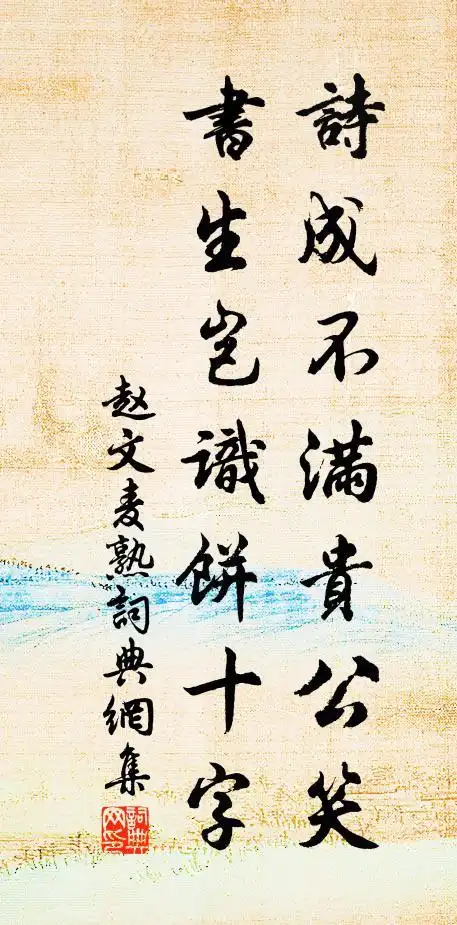 詩成不滿貴公笑
書生豈識餅十字
赵文麦熟詞典網集
詞典
网印